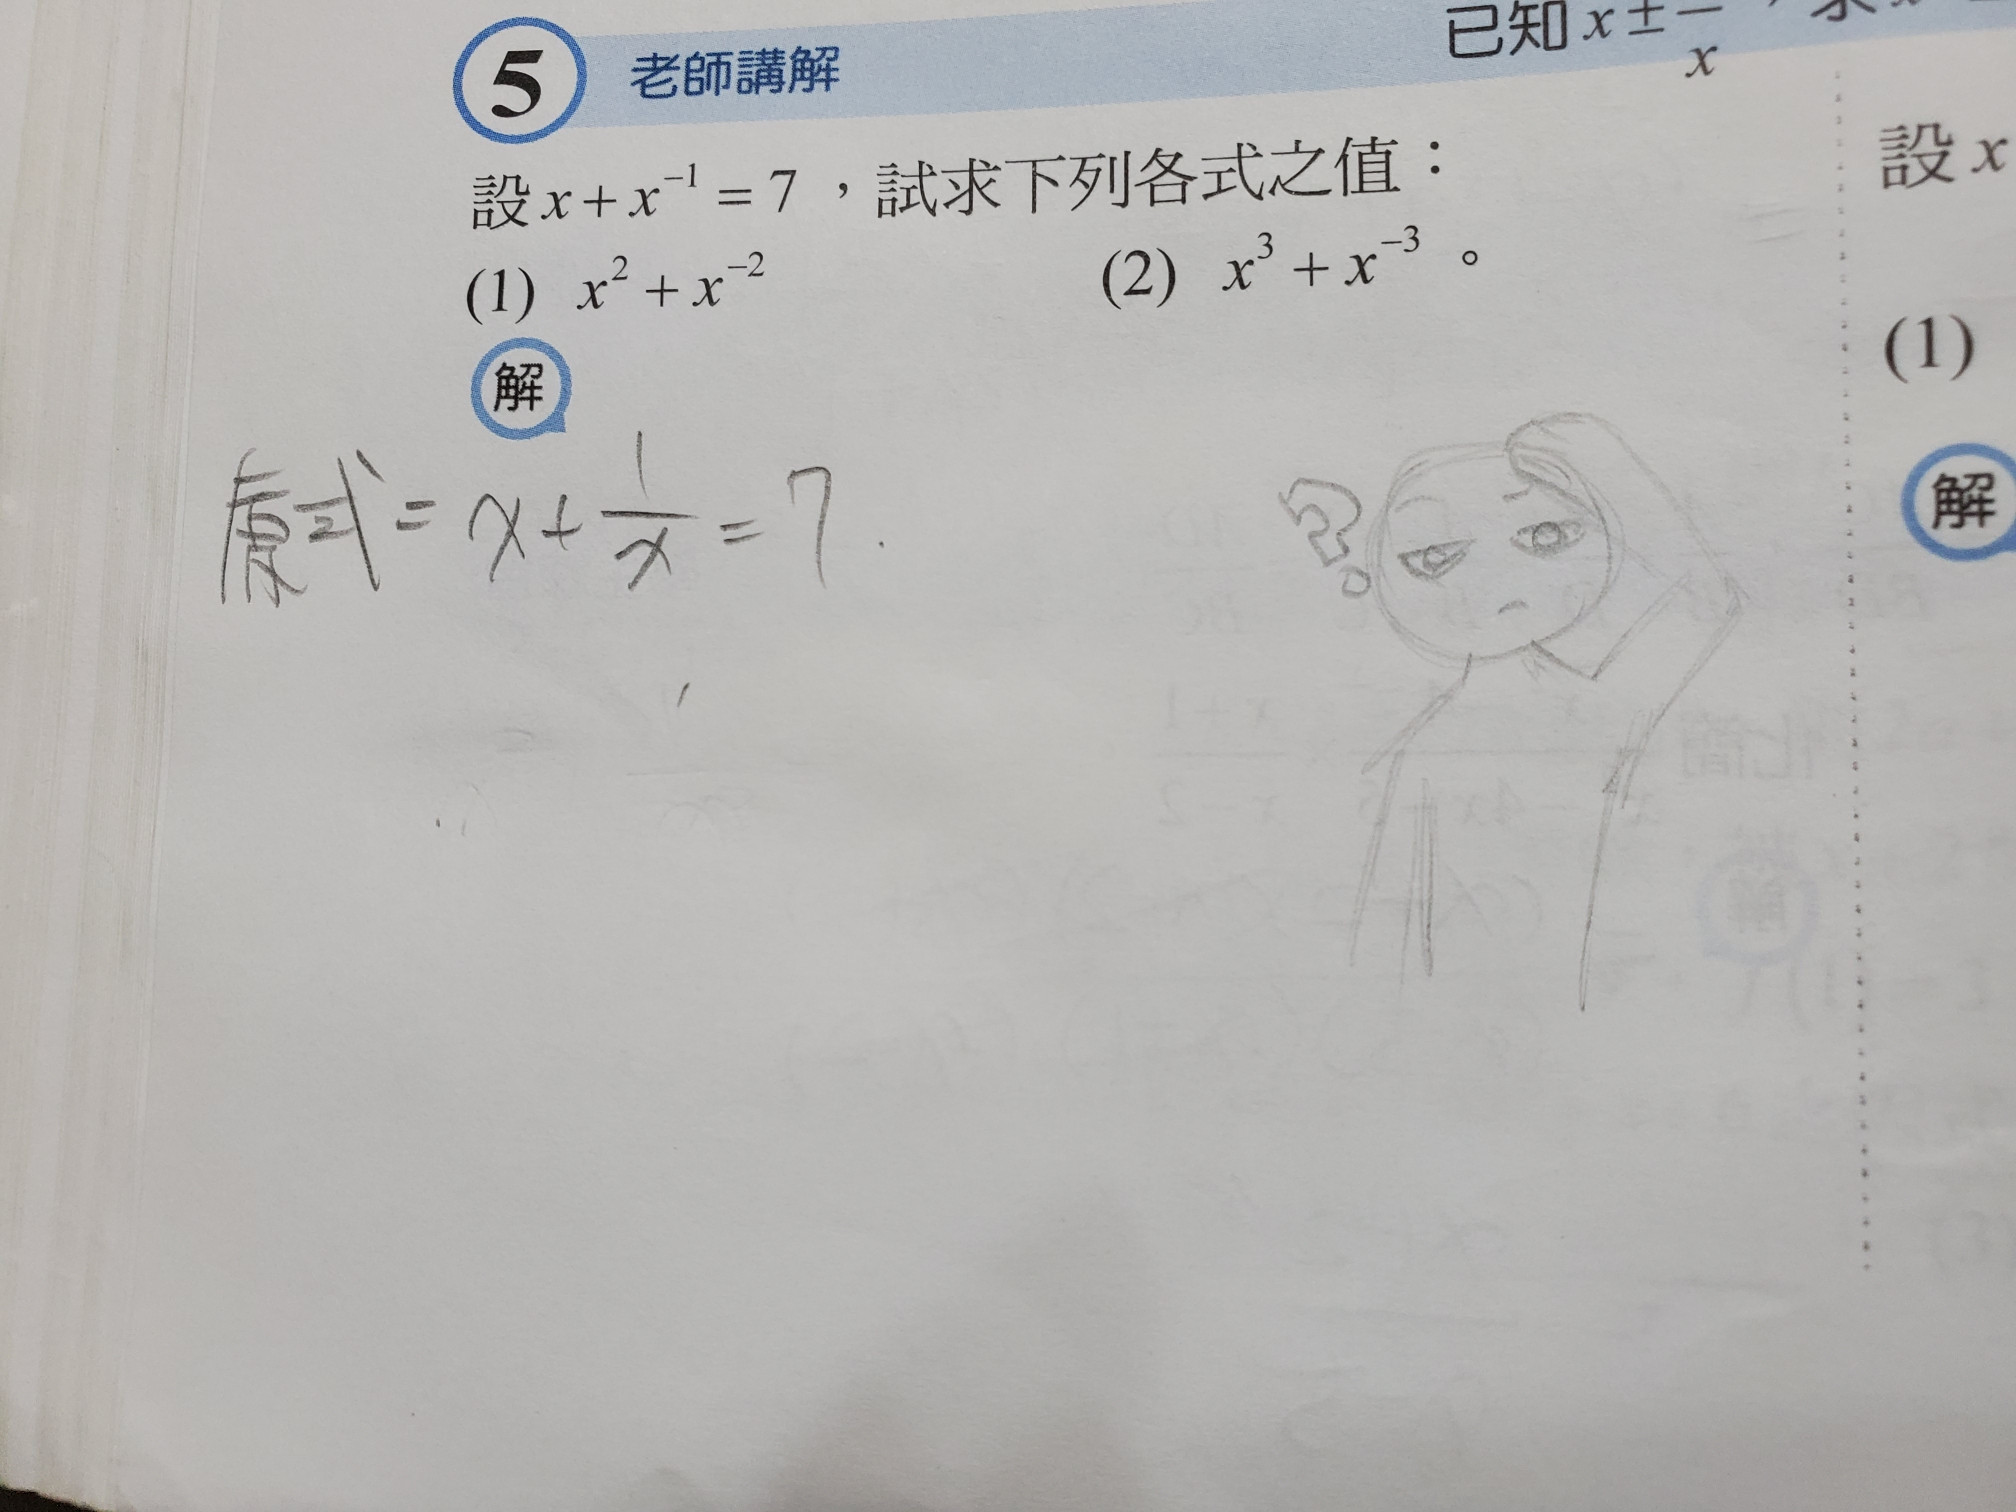 5 老師講解
已知 x ±
x
設 x + x⁻¹ = 7 ，試求下列各式之值：
(1) x² + x⁻² (2) x³ + x⁻³ 。
解
原式 = x + 1/x = 7 .
?
設 x
(1)
解